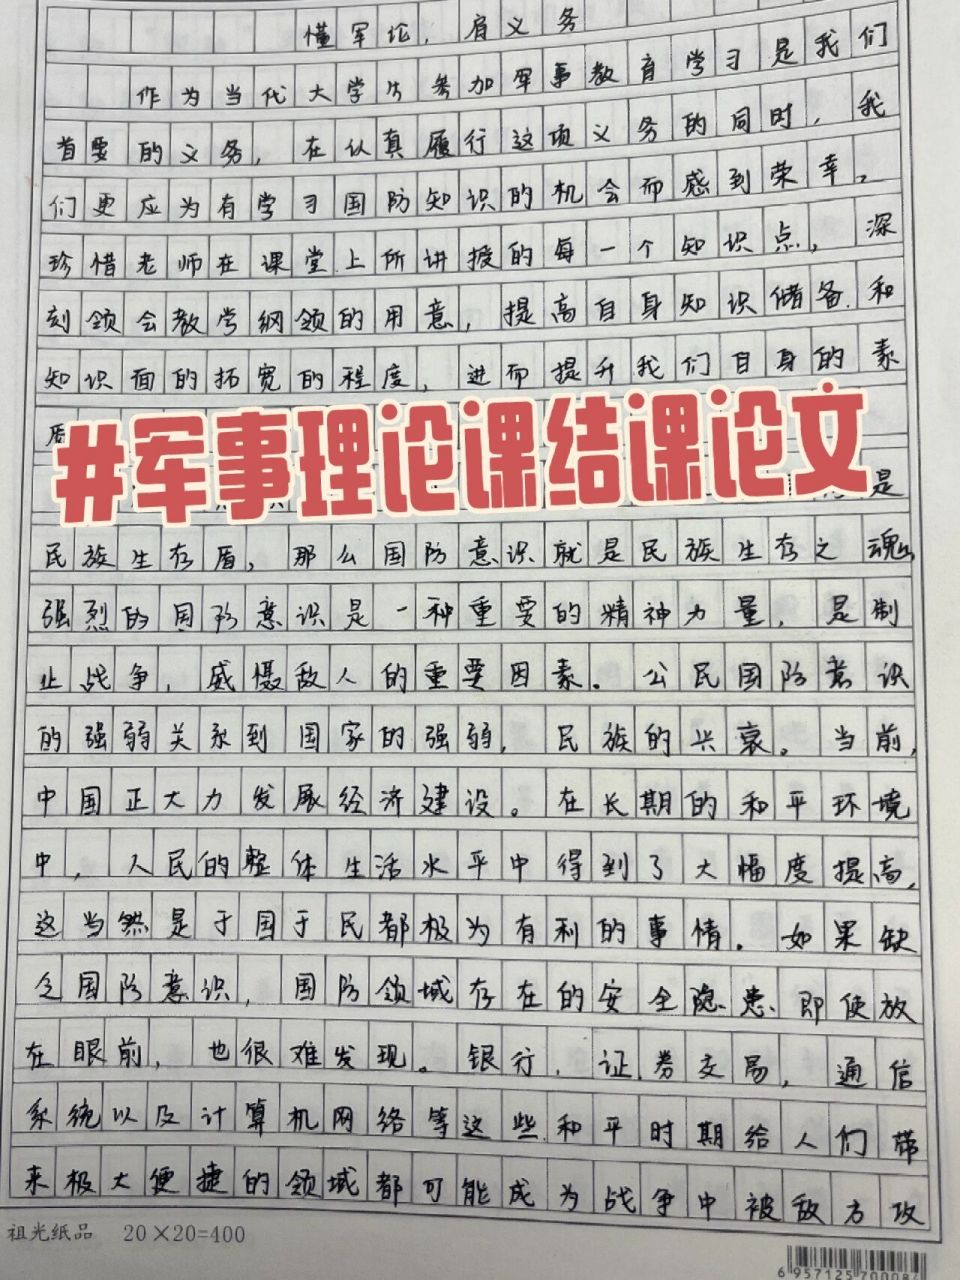 懂军论，肩义务
作为当代大学生参加军事教育学习是我们
首要的义务，在认真履行这项义务的同时，我
们更应为有学习国防知识的机会而感到荣幸。
珍惜老师在课堂上所讲授的每一个知识点，深
刻领会教学纲领的用意，提高自身知识储备.和
知识面的拓宽的程度，进而提升我们自身的素
质
#军事理论课结课论文
是
民族生存盾，那么国防意识就是民族生存之魂，
强烈的国防意识是一种重要的精神力量，是制
止战争，威慑敌人的重要因素。公民国防意识
的强弱关系到国家的强弱，民族的兴衰。当前，
中国正大力发展经济建设。在长期的和平环境
中，人民的整体生活水平中得到了大幅度提高，
这当然是于国于民都极为有利的事情.如果缺
乏国防意识，国防领域存在的安全隐患.即使放
在眼前，也很难发现。银行.证券交易，通信
系统以及计算机网络等这些和平时期给人们带
来极大便捷的领域都可能成为战争中被敌方攻
祖光纸品 20×20=400